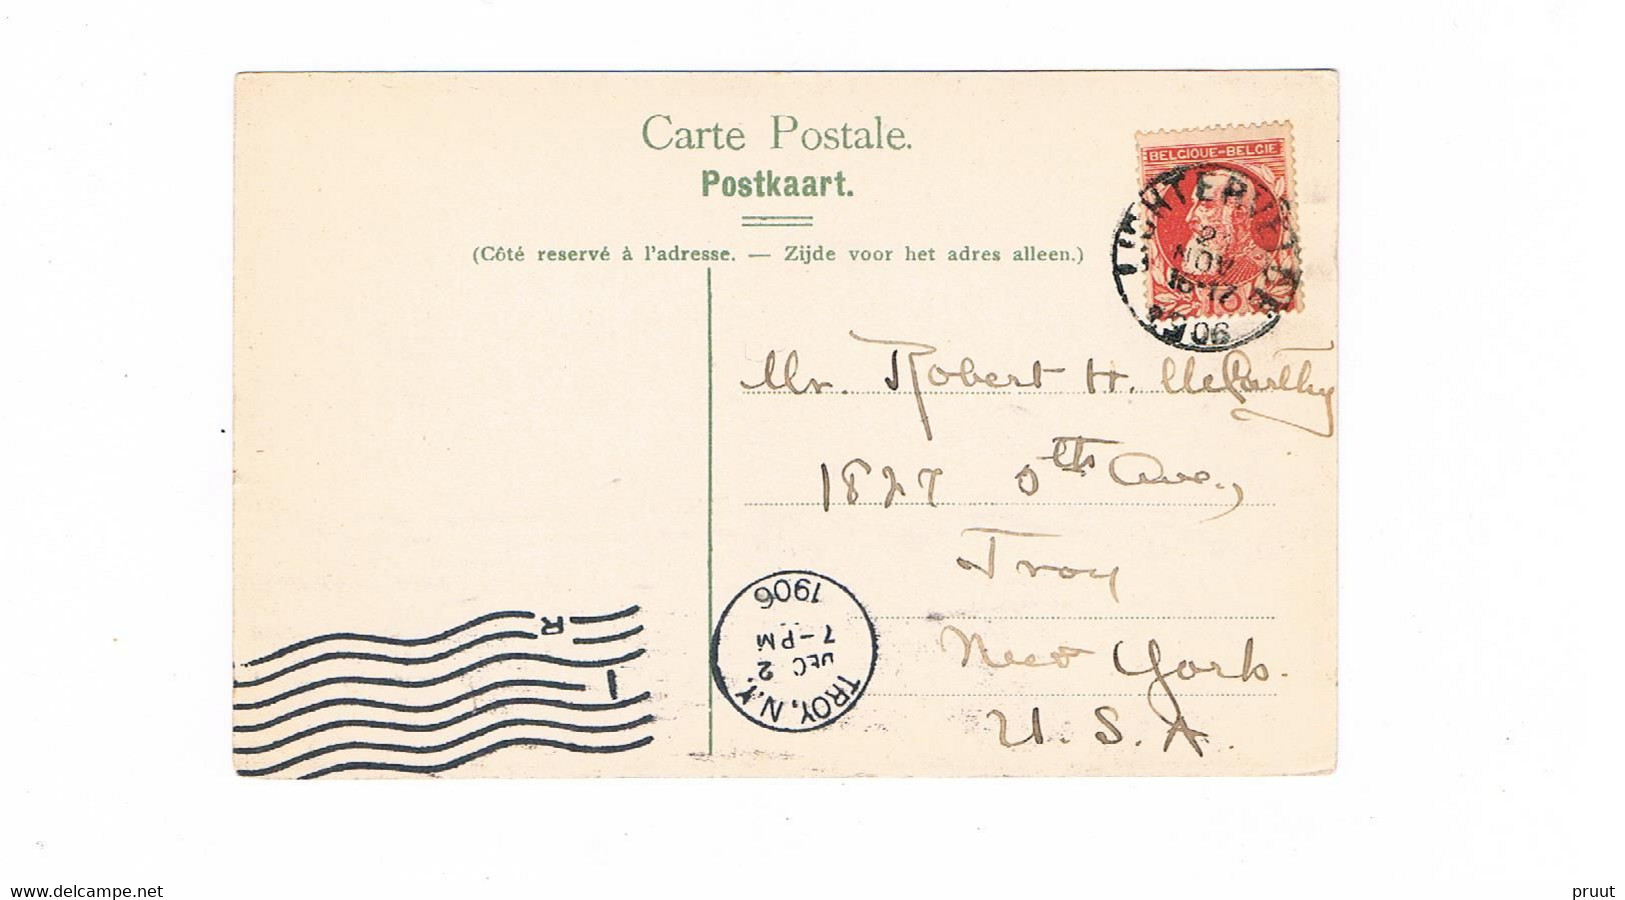 Carte Postale.
Postkaart.
(Côté reservé à l'adresse. — Zijde voor het adres alleen.)
BELGIQUE-BELGIE
10
LICHTERVELDE
NOV
16-17
06
Mr. Robert H. McCarthy
1827 5th Ave.,
Troy
New York.
U.S.A.
TROY, N.Y.
DEC 2
7-PM
1906
R
1
www.delcampe.net
pruut